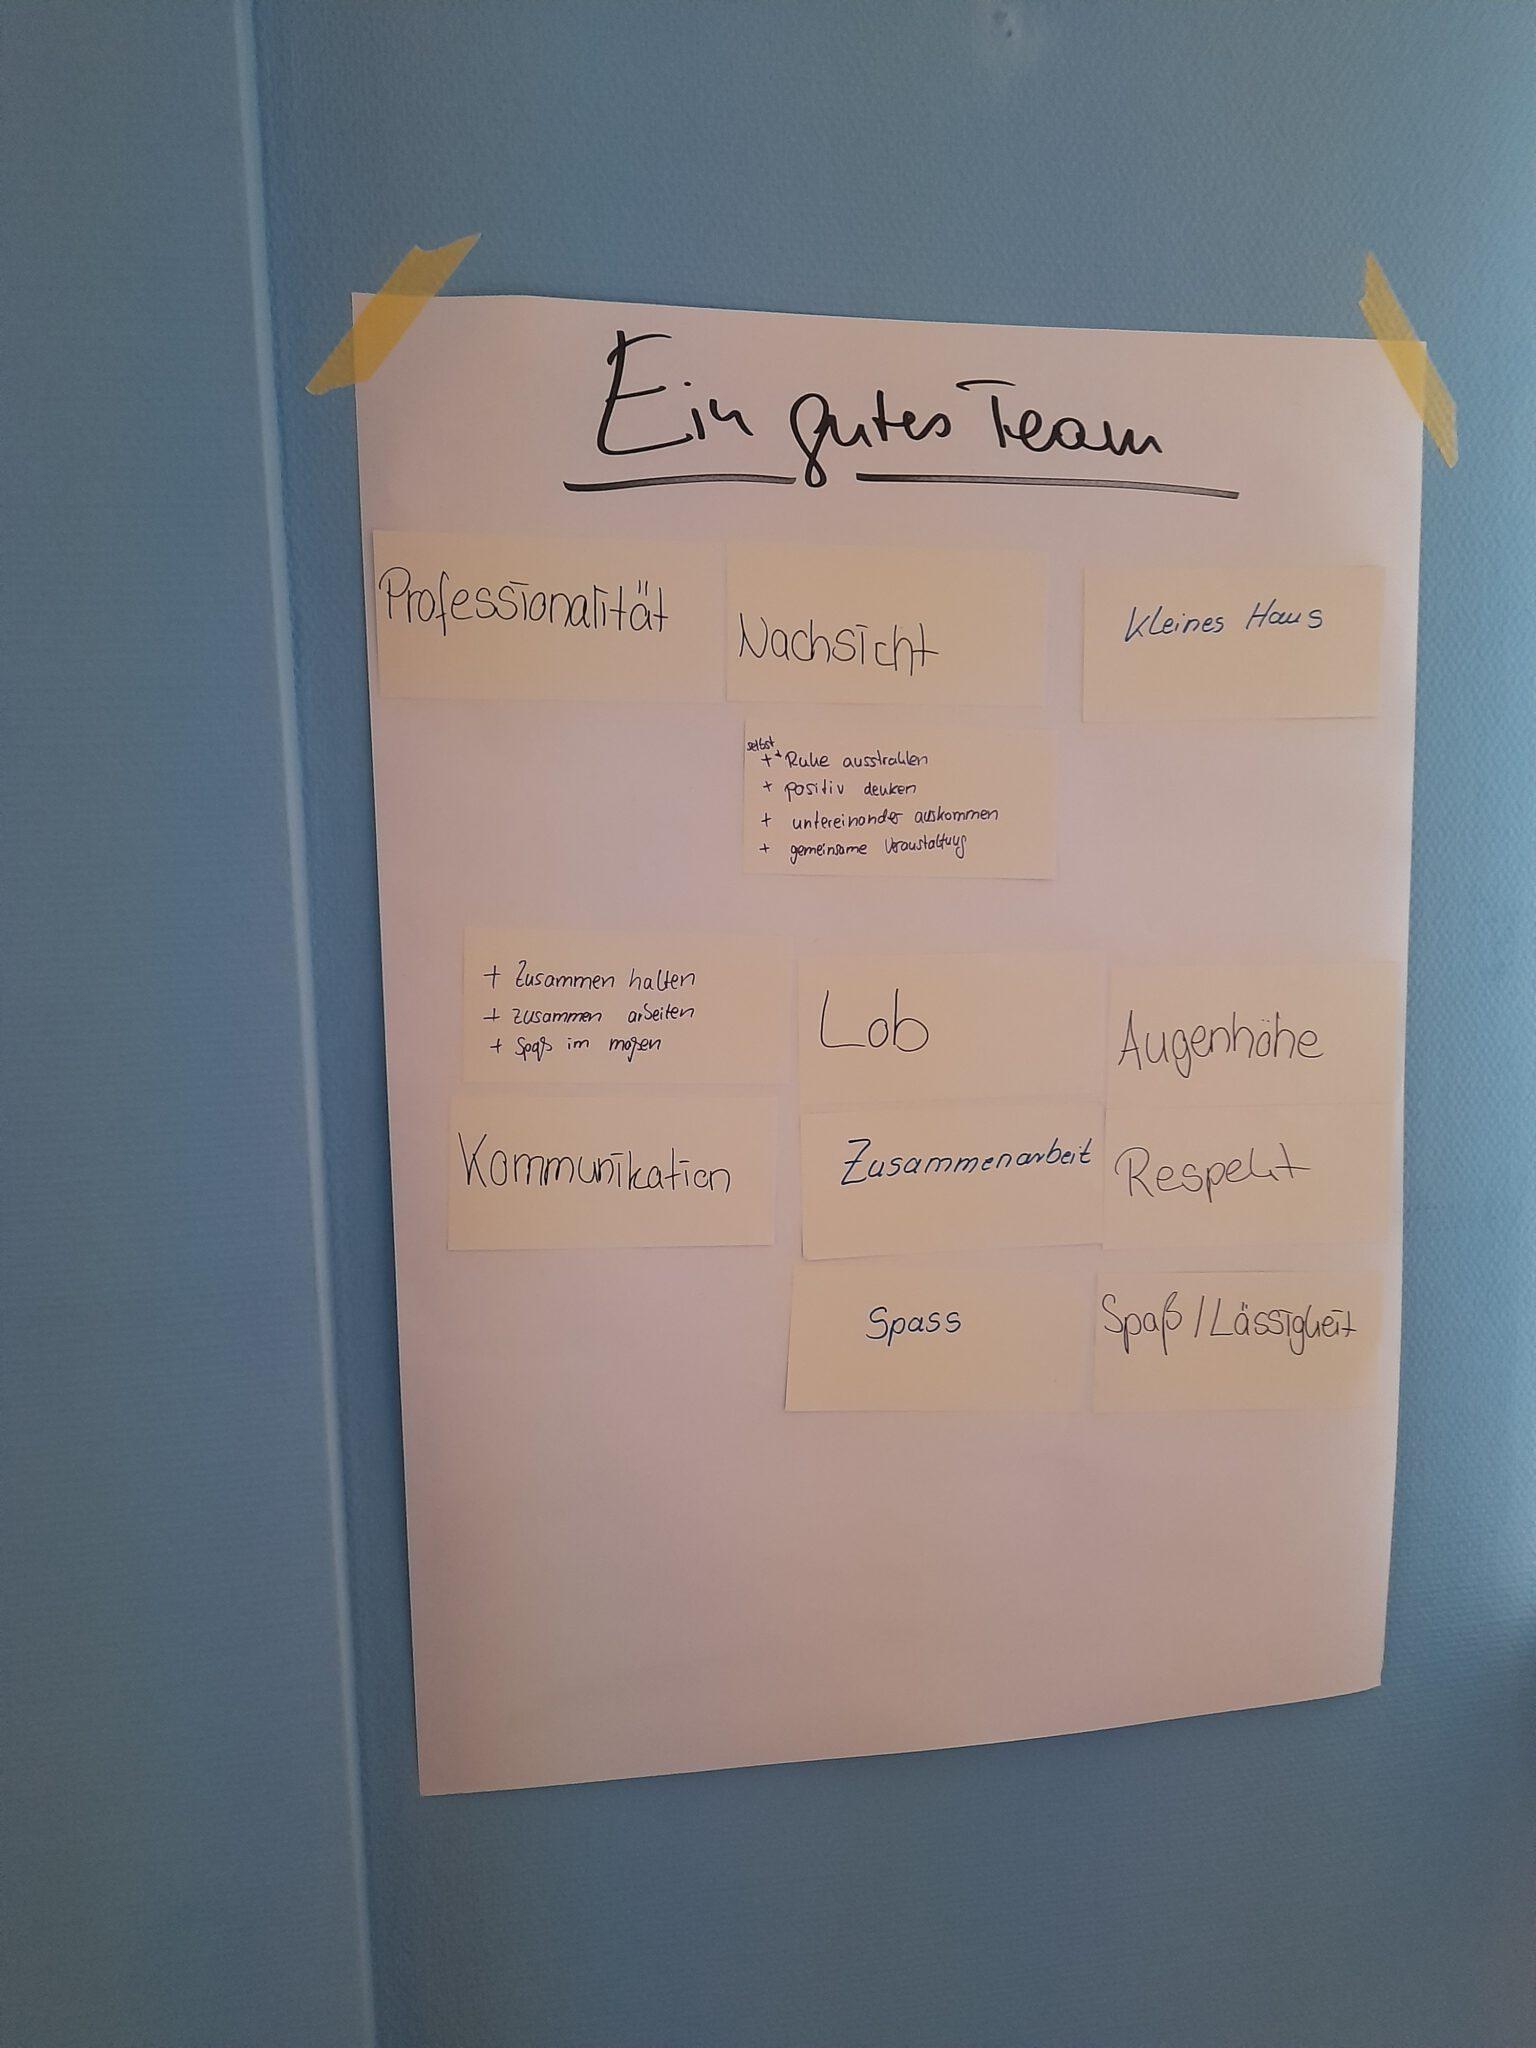 Ein gutes Team
Professionalität
Nachsicht
Kleines Haus
selbst
+ Ruhe ausstrahlen
+ positiv denken
+ untereinander auskommen
+ gemeinsame Veranstaltung
+ Zusammen halten
+ zusammen arbeiten
+ Spaß im
Lob
Augenhöhe
Kommunikation
Zusammenarbeit
Respekt
Spass
Spaß / Lässigkeit